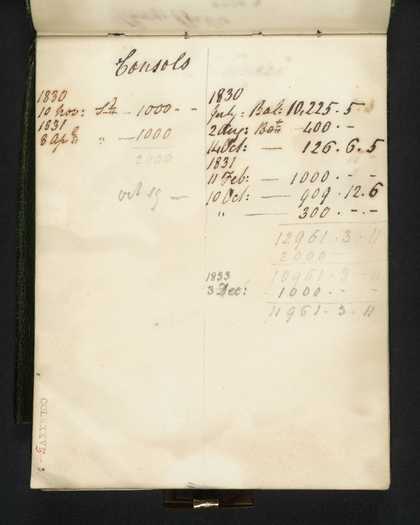 Consols
1830
10 Nov: Sd — 1000 - -
1831
8 Apl " — 1000
2000
Oct 19 —
1830
July: Bal: 10,225 . 5
2 Aug: Bot 400 . -
14 Oct: — 126 . 6 . 5
1831
11 Feb: — 1000 . - -
10 Oct: — 909 . 12 . 6
" — 300 . - . -
12961 . 3 . 11
2000
10961 . 3 . 11
1833
3 Dec: 1000 . - -
11961 . 3 . 11